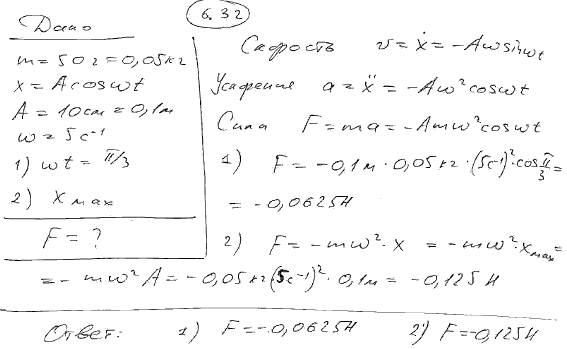 6.32
Дано
m = 50 г = 0,05 кг
x = A cos ωt
A = 10 см = 0,1 м
ω = 5 с⁻¹
1) ωt = π/3
2) x max
F = ?
Скорость v = ẋ = -Aω sin ωt
Ускорение a = ẍ = -Aω² cos ωt
Сила F = ma = -Amω² cos ωt
1) F = -0,1 м · 0,05 кг · (5с⁻¹)² · cos π/3 =
= -0,0625 Н
2) F = -mω² · x = -mω² · x max =
= -mω² A = -0,05 кг (5с⁻¹)² · 0,1 м = -0,125 Н
Ответ: 1) F = -0,0625 Н 2) F = -0,125 Н